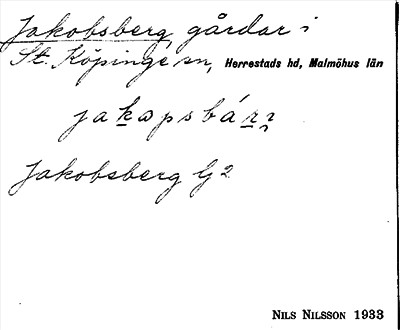 Jakobsberg, gårdar i
St. Köpinge sn, Herrestads hd, Malmöhus län
jakɷpsbáʀɿ
Jakobsberg G2
NILS NILSSON 1933